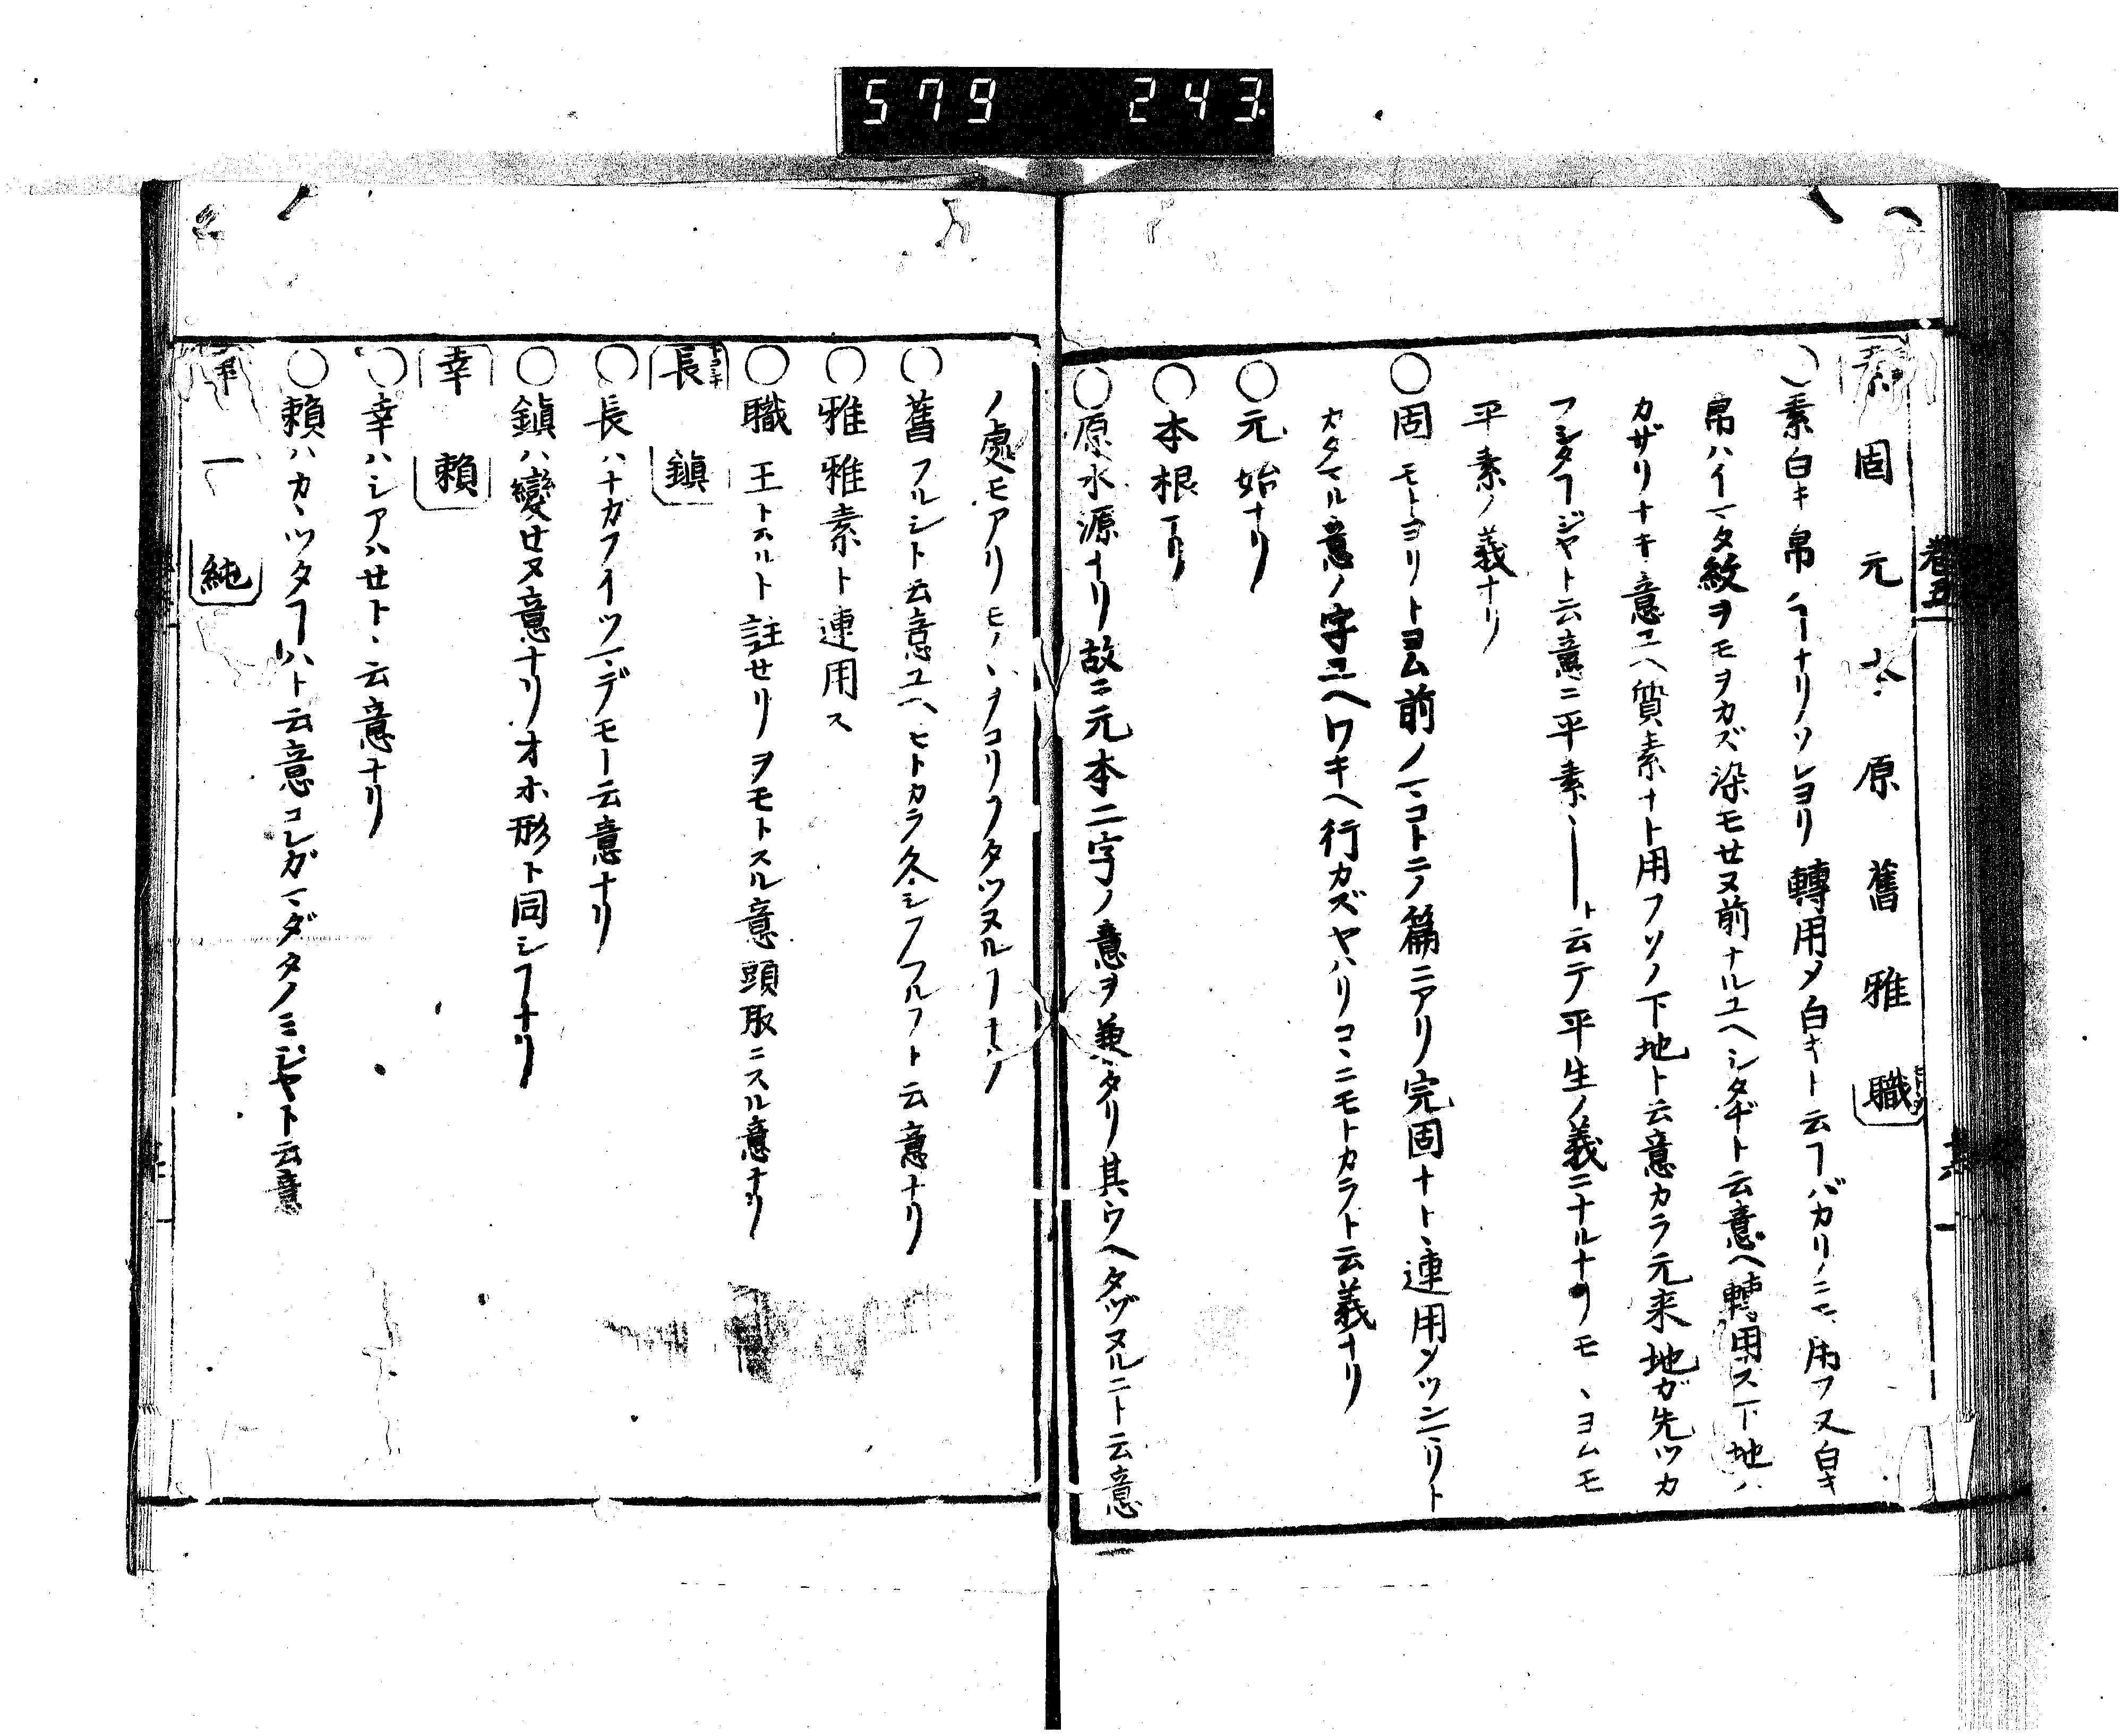 579 243
卷五
素固元本原舊雅職
○素白キ帛ノヿナリソレヨリ轉用メ白キト云ヿバカリニモ用フ又白キ
帛ハイマタ紋ヲモヲカズ染モセヌ前ナルユヘシタヂト云意ヘ轉用ス下地ハ
カザリナキ意ユヘ質素ナト用フソノ下地ト云意カラ元来地ガ先ツカ
フシタヿジヤト云意ニ平素―ト云テ平生ノ義ニナルナリモヽヨムモ
平素ノ義ナリ
○固モトヨリトヨム前ノマコトニノ篇ニアリ完固ナトヽ連用
カタマル意ノ字ユヘワキヘ行カズヤハリコヽニモトカラト云義ナリ
○元始ナリ
○本根ナリ
○原水源ナリ故ニ元本二字ノ意ヲ兼タリ其ウヘタヅヌルニト云意
ノ處モアリモノヽヲコリヲタツヌルヿナリ
○舊フルシト云意ユヘヒトカラ久シフフルフト云意ナリ
○雅雅素ト連用ス
○職王トスルト註セリヲモトスル意頭取ニスル意ナリ
長鎮
○長ハナカフイツマデモト云意ナリ
○鎮ハ變セヌ意ナリオホ形ト同シヿナリ
幸賴
○幸ハシアハセトヽ云意ナリ
○賴ハカヽツタヿハト云意コレガマダタノミジヤト云意
一純